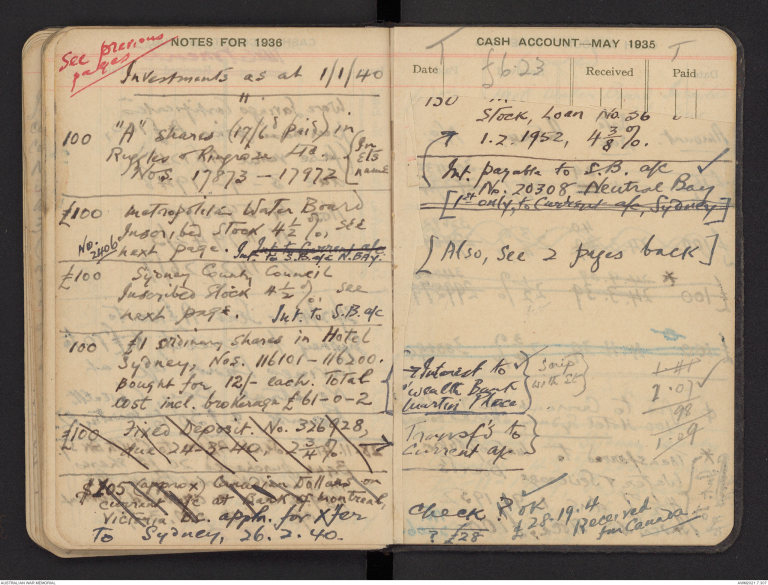 See previous
pages
NOTES FOR 1936
Investments as at 1/1/40
100 "A" shares (17/6 paid) in
Ruggles & Ringrose Ltd
Nos. 17873 – 17972
In
Et's
name
£100 Metropolitan Water Board
Inscribed Stock 4½%, see
No. 2406
next page. Int. to Current a/c
Int. to S.B. a/c N. Bay.
£100 Sydney County Council
Inscribed Stock 4½%, see
next page. Int. to S.B. a/c
100 £1 ordinary shares in Hotel
Sydney, Nos. 116101 – 116200.
Bought for 12/- each. Total
cost incl. brokerage £61-0-2
£100 Fixed Deposit No. 326928,
due 24-3-40 2¾%
$205 (approx) Canadian Dollars on
current a/c at Bank of Montreal,
Victoria, B.C. appln. for Xfer
To Sydney, 26.2.40.
CASH ACCOUNT—MAY 1935
Date
£6.23
Received
Paid
150
Stock, Loan No. 36
1.2.1952, 4⅜%.
Int. payable to S.B. a/c
No. 20308 Neutral Bay
[1st only, to Current a/c, Sydney]
[Also, see 2 pages back]
→ Interest to
C'wealth Bank
Martin Place
Scrip
with Et
Transf'd to
Current a/c
1.11
1.07
98
1.09
Check ? OK
? £28
£28.19.4
Received
from Canada
AUSTRALIAN WAR MEMORIAL